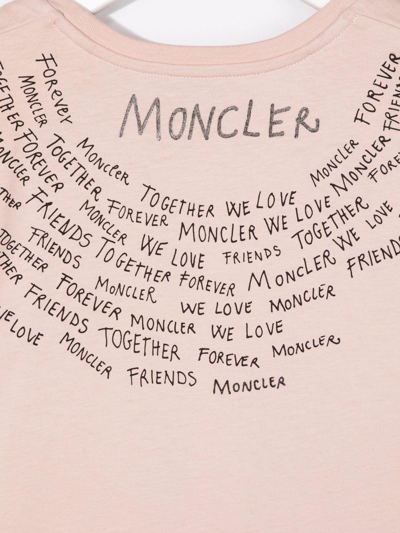 MONCLER
FOREVER MONCLER TOGETHER WE LOVE MONCLER FOREVER
TOGETHER MONCLER TOGETHER FOREVER MONCLER WE LOVE MONCLER FRIENDS
FOREVER MONCLER WE LOVE FRIENDS TOGETHER
MONCLER FRIENDS TOGETHER FOREVER MONCLER WE LOVE
FRIENDS MONCLER WE LOVE MONCLER FRIENDS
TOGETHER FOREVER MONCLER WE LOVE
FRIENDS TOGETHER FOREVER MONCLER
WE LOVE MONCLER FRIENDS MONCLER